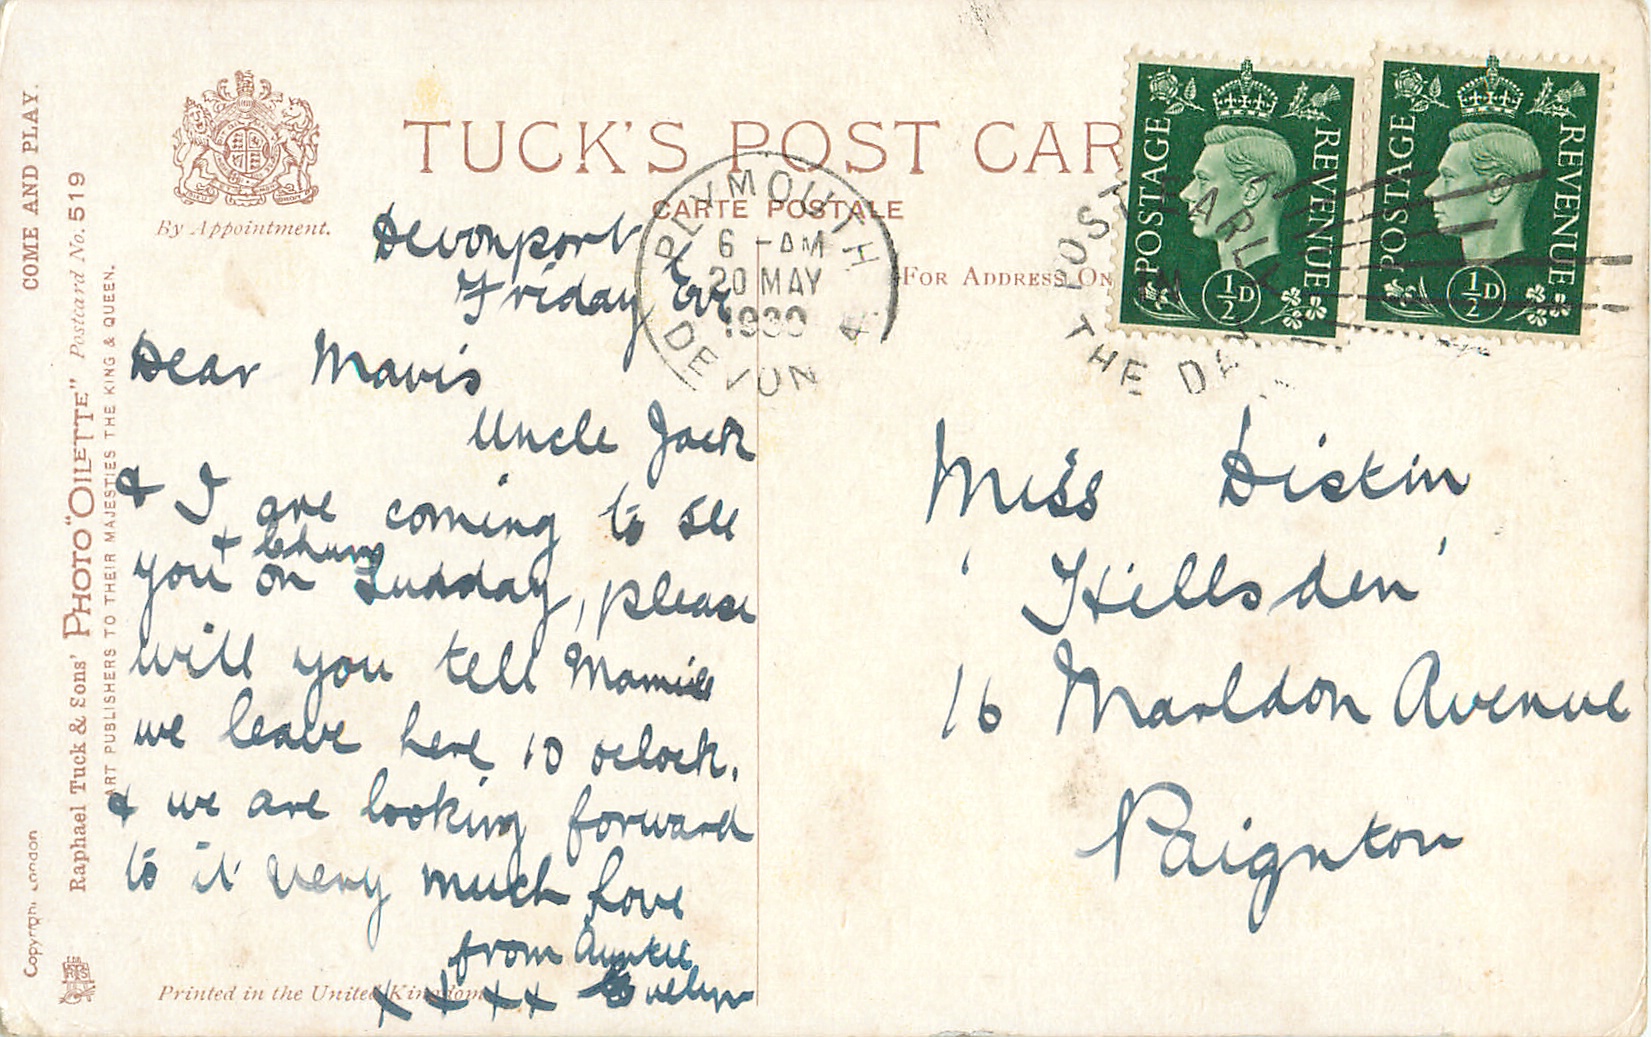 COME AND PLAY.
Copyright London
Raphael Tuck & Sons' PHOTO "OILETTE" Postcard No. 519
ART PUBLISHERS TO THEIR MAJESTIES THE KING & QUEEN.
By Appointment.
TUCK'S POST CAR
CARTE POSTALE
FOR ADDRESS ON
PLYMOUTH
6 - AM
20 MAY
DEVON 4.
POST EARLY IN
THE DAY
POSTAGE REVENUE
½D
POSTAGE REVENUE
½D
Devonport
Friday Eve
Dear Mavis
Uncle Jack
& I are coming to see
you + on Sudday, please
will you tell Mamie
we leave here 10 oclock.
& we are looking forward
to it very much love
from Auntie
x x x x Evelyn
Miss Distin
'Hillsden'
16 Marldon Avenue
Paignton
Printed in the United Kingdom